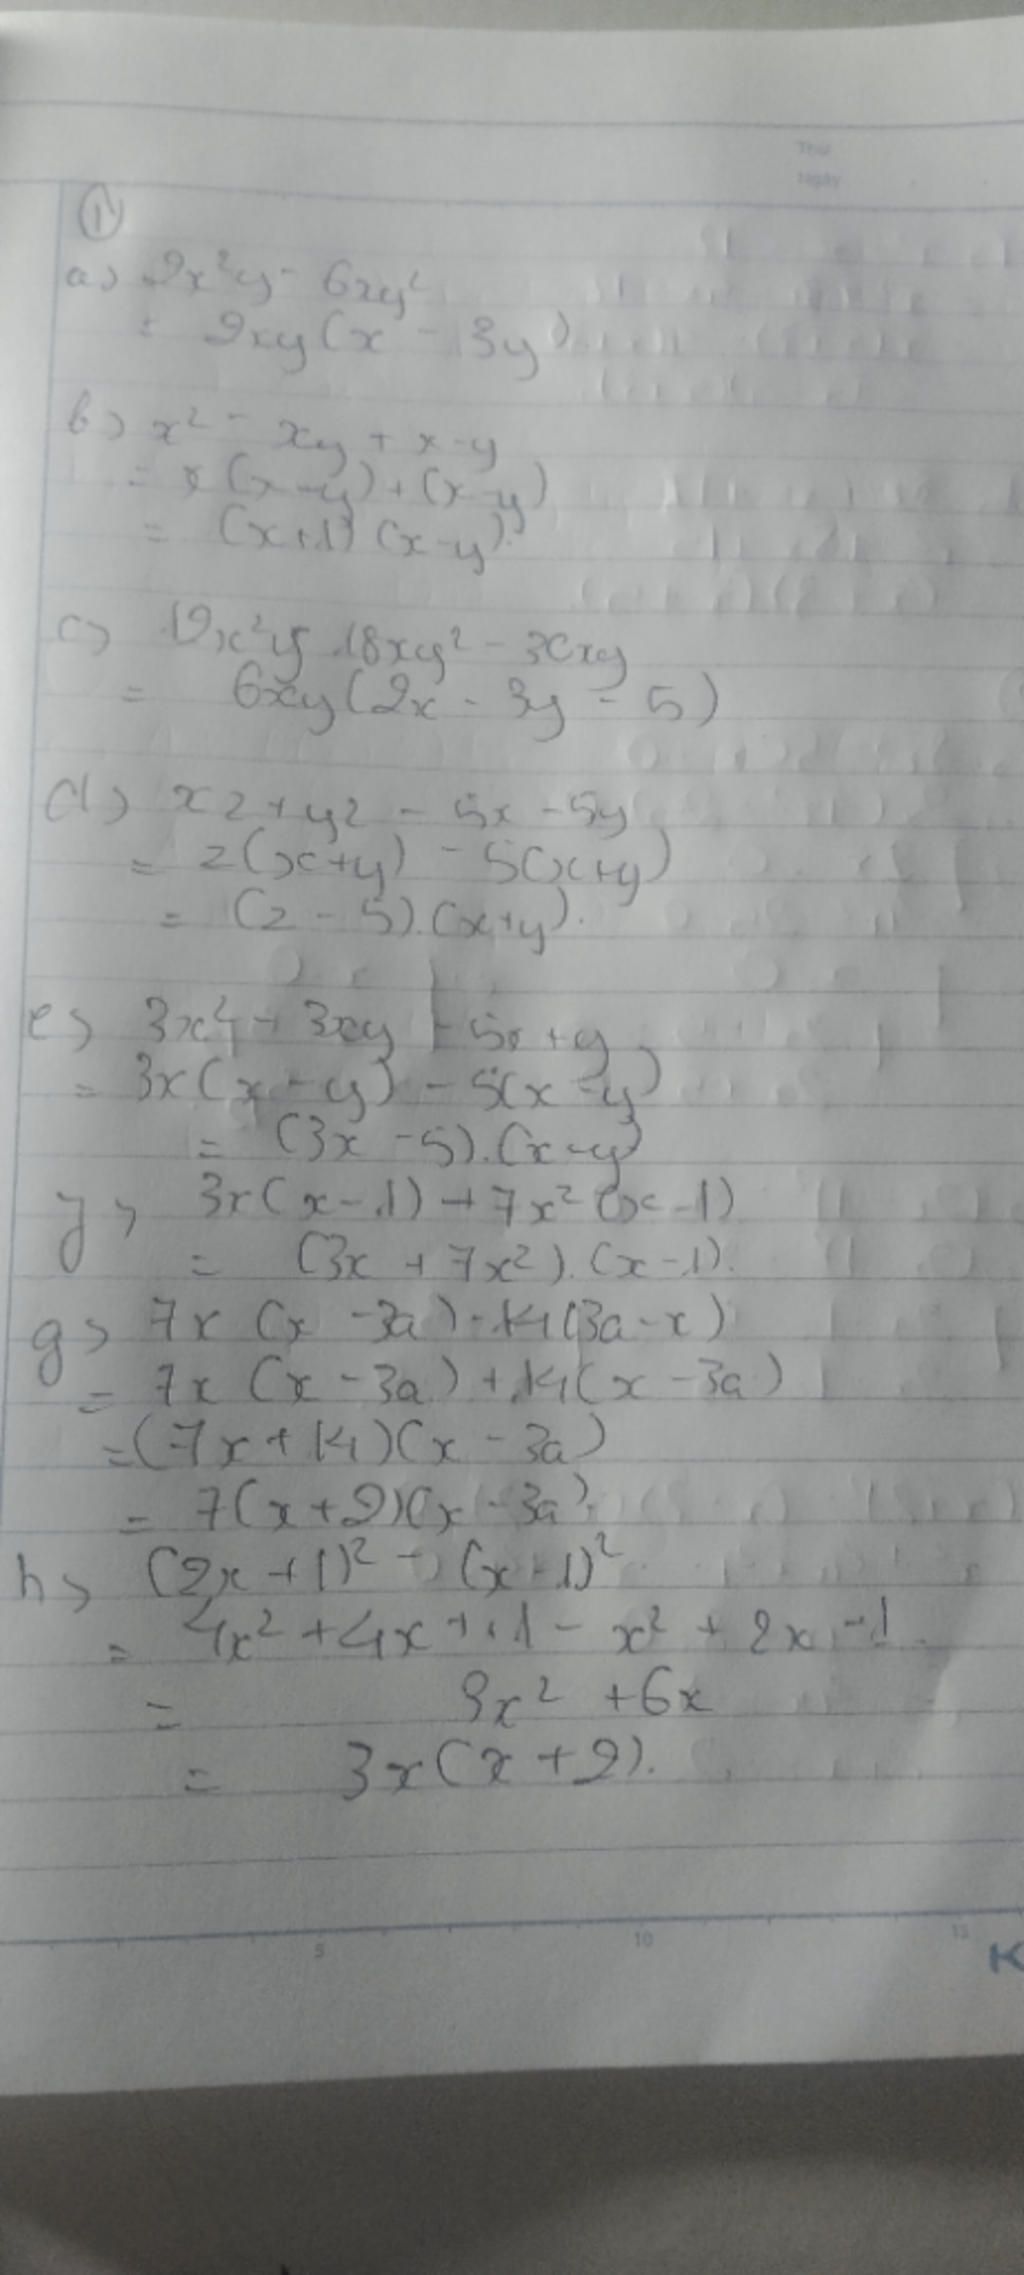 Thứ
Ngày
①
a) 2x²y - 6xy²
= 2xy(x - 3y).
b) x² - xy + x - y
= x(x-y) + (x-y)
= (x+1)(x-y).
c) 12x²y 18xy² - 30xy
= 6xy(2x - 3y - 5)
d) xz + yz - 5x - 5y
= z(x+y) - 5(x+y)
= (z - 5).(x+y).
e) 3x² - 3xy - 5x + y
= 3x(x - y) - 5(x - y)
= (3x - 5).(x - y)
f) 3x(x - 1) + 7x²(x - 1)
= (3x + 7x²).(x - 1).
g) 7x(x - 3a) - 14(3a - x)
= 7x(x - 3a) + 14(x - 3a)
= (7x + 14)(x - 3a)
= 7(x + 2)(x - 3a).
h) (2x + 1)² - (x - 1)²
= 4x² + 4x + 1 - x² + 2x - 1.
= 3x² + 6x
= 3x(x + 2).
5 10 15
K